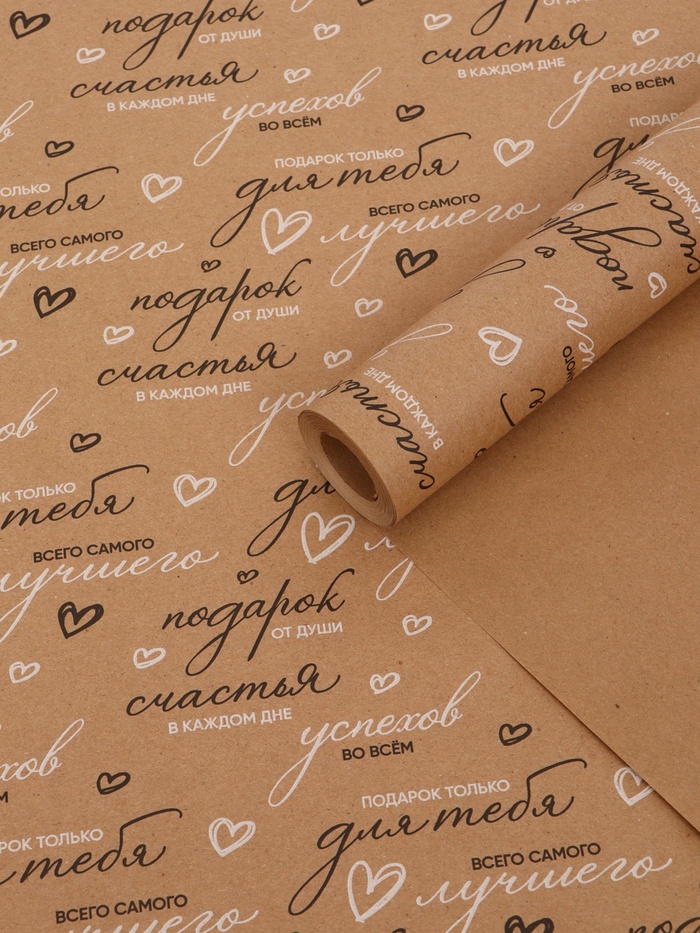 подарок
ОТ ДУШИ
счастья
В КАЖДОМ ДНЕ
счастья
В КАЖДОМ ДНЕ
успехов
ВО ВСЁМ
успехов
ВО ВСЁМ
ПОДАРОК ТОЛЬКО
для тебя
ТОЛЬКО
тебя
ВСЕГО САМОГО
лучшего
ВСЕГО САМОГО
лучшего
подарок
ОТ ДУШИ
счастья
В КАЖДОМ ДНЕ
В КАЖДОМ ДНЕ
ТОЛЬКО
тебя
ВСЕГО САМОГО
лучшего
подарок
ОТ ДУШИ
счастья
В КАЖДОМ ДНЕ
успехов
ВО ВСЁМ
ПОДАРОК ТОЛЬКО
для тебя
ТОЛЬКО
тебя
ВСЕГО САМОГО
лучшего
ВСЕГО САМОГО
лучшего